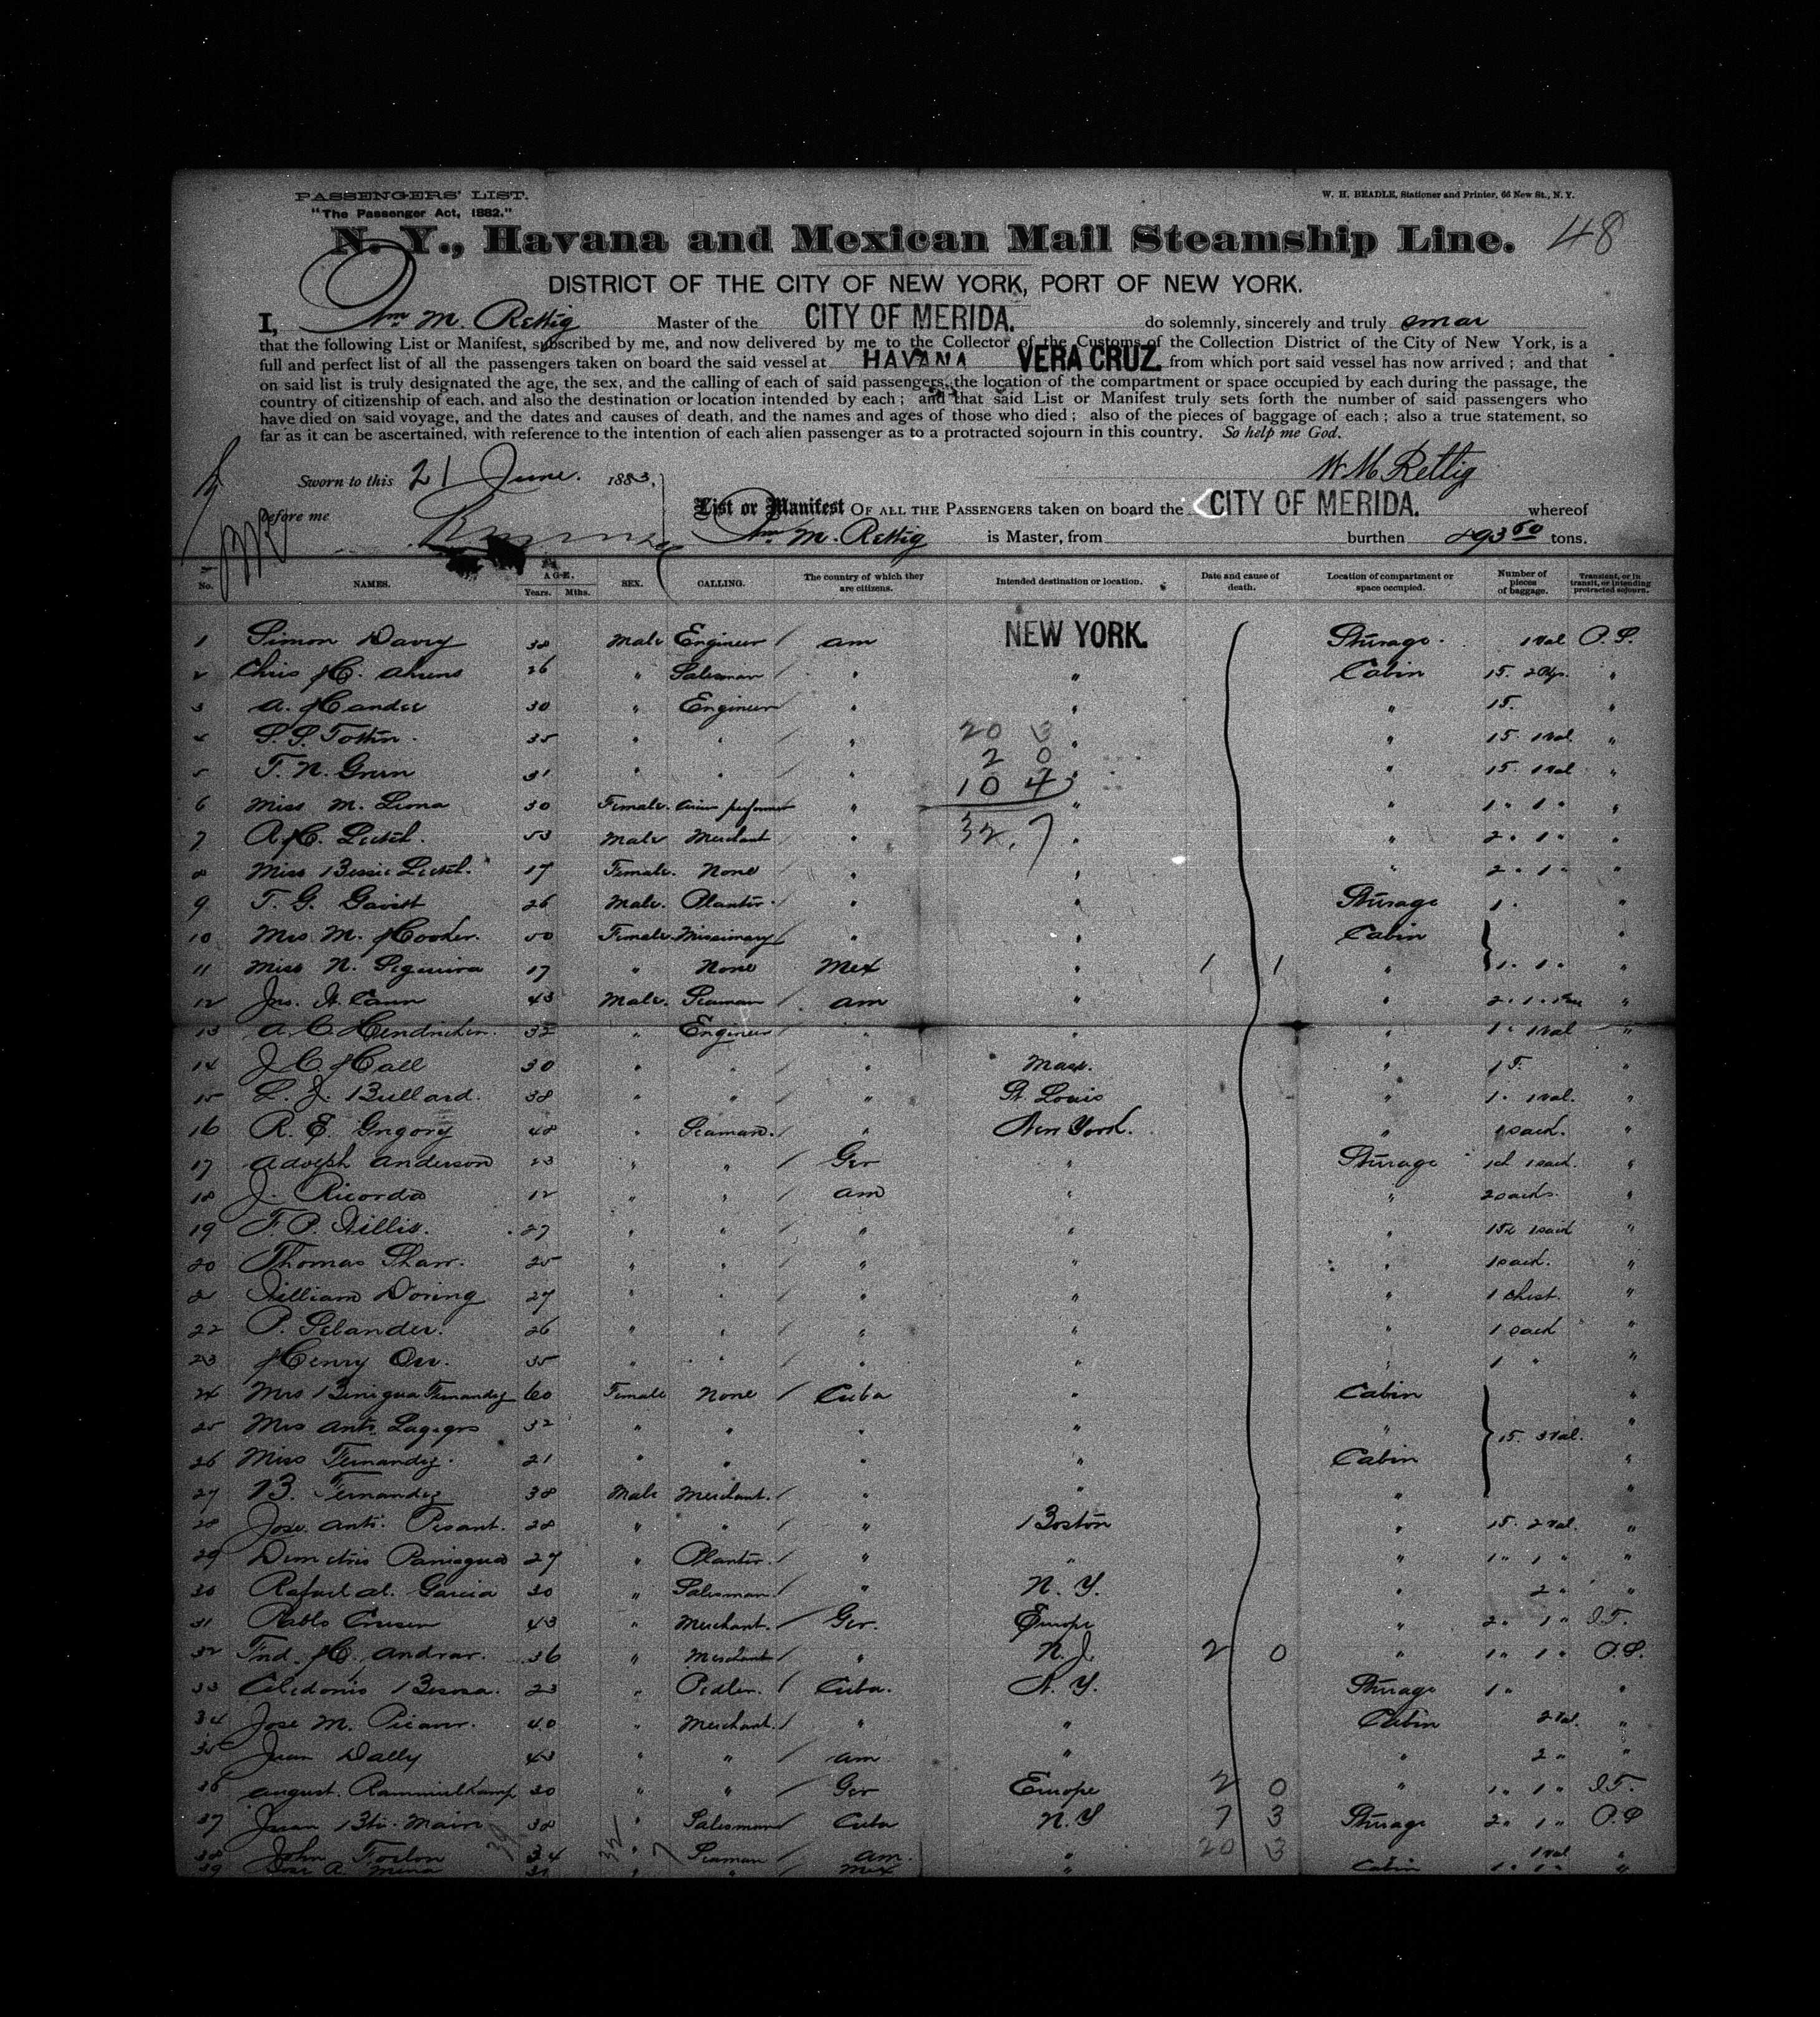 PASSENGERS' LIST.
"The Passenger Act, 1882."
W. H. BEADLE, Stationer and Printer, 66 New St., N. Y.
N. Y., Havana and Mexican Mail Steamship Line. 48
DISTRICT OF THE CITY OF NEW YORK, PORT OF NEW YORK.
I, Wm M. Rettig Master of the CITY OF MERIDA. do solemnly, sincerely and truly swear
that the following List or Manifest, subscribed by me, and now delivered by me to the Collector of the Customs of the Collection District of the City of New York, is a
full and perfect list of all the passengers taken on board the said vessel at HAVANA VERA CRUZ. from which port said vessel has now arrived; and that
on said list is truly designated the age, the sex, and the calling of each of said passengers, the location of the compartment or space occupied by each during the passage, the
country of citizenship of each, and also the destination or location intended by each; and that said List or Manifest truly sets forth the number of said passengers who
have died on said voyage, and the dates and causes of death, and the names and ages of those who died; also of the pieces of baggage of each; also a true statement, so
far as it can be ascertained, with reference to the intention of each alien passenger as to a protracted sojourn in this country. So help me God.
W M Rettig
Sworn to this 21 June. 1883,
before me
List or Manifest OF ALL THE PASSENGERS taken on board the CITY OF MERIDA. whereof
Wm M. Rettig is Master, from burthen 1493 60 tons.
No. NAMES. AGE. Years. Mths. SEX. CALLING. The country of which they are citizens. Intended destination or location. Date and cause of death. Location of compartment or space occupied. Number of pieces of baggage. Transient, or in transit, or intending protracted sojourn.
1 Simon Davry 38 Male Engineer / am NEW YORK. Sturage. 1 Val P. S.
2 Chris H. Ahrens 26 " Salesman / " " Cabin "
3 A. Hander 30 " Engineer " " " 1 T. "
4 S. S. Tottin. 35 " " / " " " 1 T. 1 Val "
5 T. N. Grun 31 " " / " " " 1 T. 1 Val "
6 Miss M. Liona 30 Female. performer " " " 1 " 1 " "
7 R. H. Leitch. 53 Male Merchant " " " 2 " 1 " "
8 Miss Bessie Leitch. 17 Female. None " " " 2 " 1 " "
9 T. G. Gavitt 26 Male. Planter. " " Sturage 1 " "
10 Mrs M. Hooker. 50 Female. Missionary / " " Cabin "
11 Miss N. Siguira 17 " None Mex " 1 1 " 1 " 1 " "
12 Jno. H. Cann 43 Male. Seaman / am " " "
13 A. C. Hendricken. 32 " Engineer / " " " 1 " 1 Val "
14 J. C. Hall 30 " " " Mass. " 1 T. "
15 L. J. Bullard. 38 " " / " St. Louis " 1 " 1 Val. "
16 R. E. Grigory 48 " Seaman. / " New York. " 1 sack. "
17 Adolph Anderson 23 " " / Ger " Sturage 1 sack. "
18 J. Ricorda 12 " " / am " " 2 sacks. "
19 F. P. Willis. 27 " " / " " " 1 sack "
20 Thomas Shaw. 25 " " / " " " 1 sack. "
21 William Doring 27 " " / " " " 1 Chest. "
22 P. Selander. 26 " " / " " " 1 sack "
23 Henry Orr. 35 " " / " " " 1 " "
24 Mrs Benigna Fernandez 60 Female None / Cuba " Cabin "
25 Mrs Anto. 32 " " " " " 1 T. 3 Val. "
26 Miss Fernandez. 21 " " " " Cabin "
27 B. Fernandez 38 Male Merchant. / " " " "
28 Jose. Anto. Pesant. 28 " " / " Boston " 1 T. 2 Val. "
29 Demetrio Paniagua 27 " Planter. / " " " 1 " 1 " "
30 Rafael M. Garcia 30 " Salesman / " N. Y. " 2 " "
31 Pablo Crusen 43 " Merchant. / Ger. Europe " 2 " 1 " I. T.
32 Fred. H. Andrar. 36 " Merchant " N. J. 2 0 " 1 " 1 " P. S.
33 Celedonio Besosa. 23 " Pedler. / Cuba. N. Y. Sturage 1 " "
34 Jose M. Picaur. 40 " Merchant. / " " Cabin 2 Val. "
35 Juan Dally 43 " " / am " " 2 " "
36 August. Rammielkamp 30 " " / Ger Europe 2 0 " 1 " 1 " I. T.
37 Juan Bti. Main 38 " Salesman / Cuba N. Y 7 3 Sturage 2 " 1 " P. S
38 John Forlon 34 " Seaman / am. " 20 3 1 Val "
39 Jose A. Mena 31 " " / Mex " Cabin 1 " 1 " "
20 3
2 0
10 4
32. 7